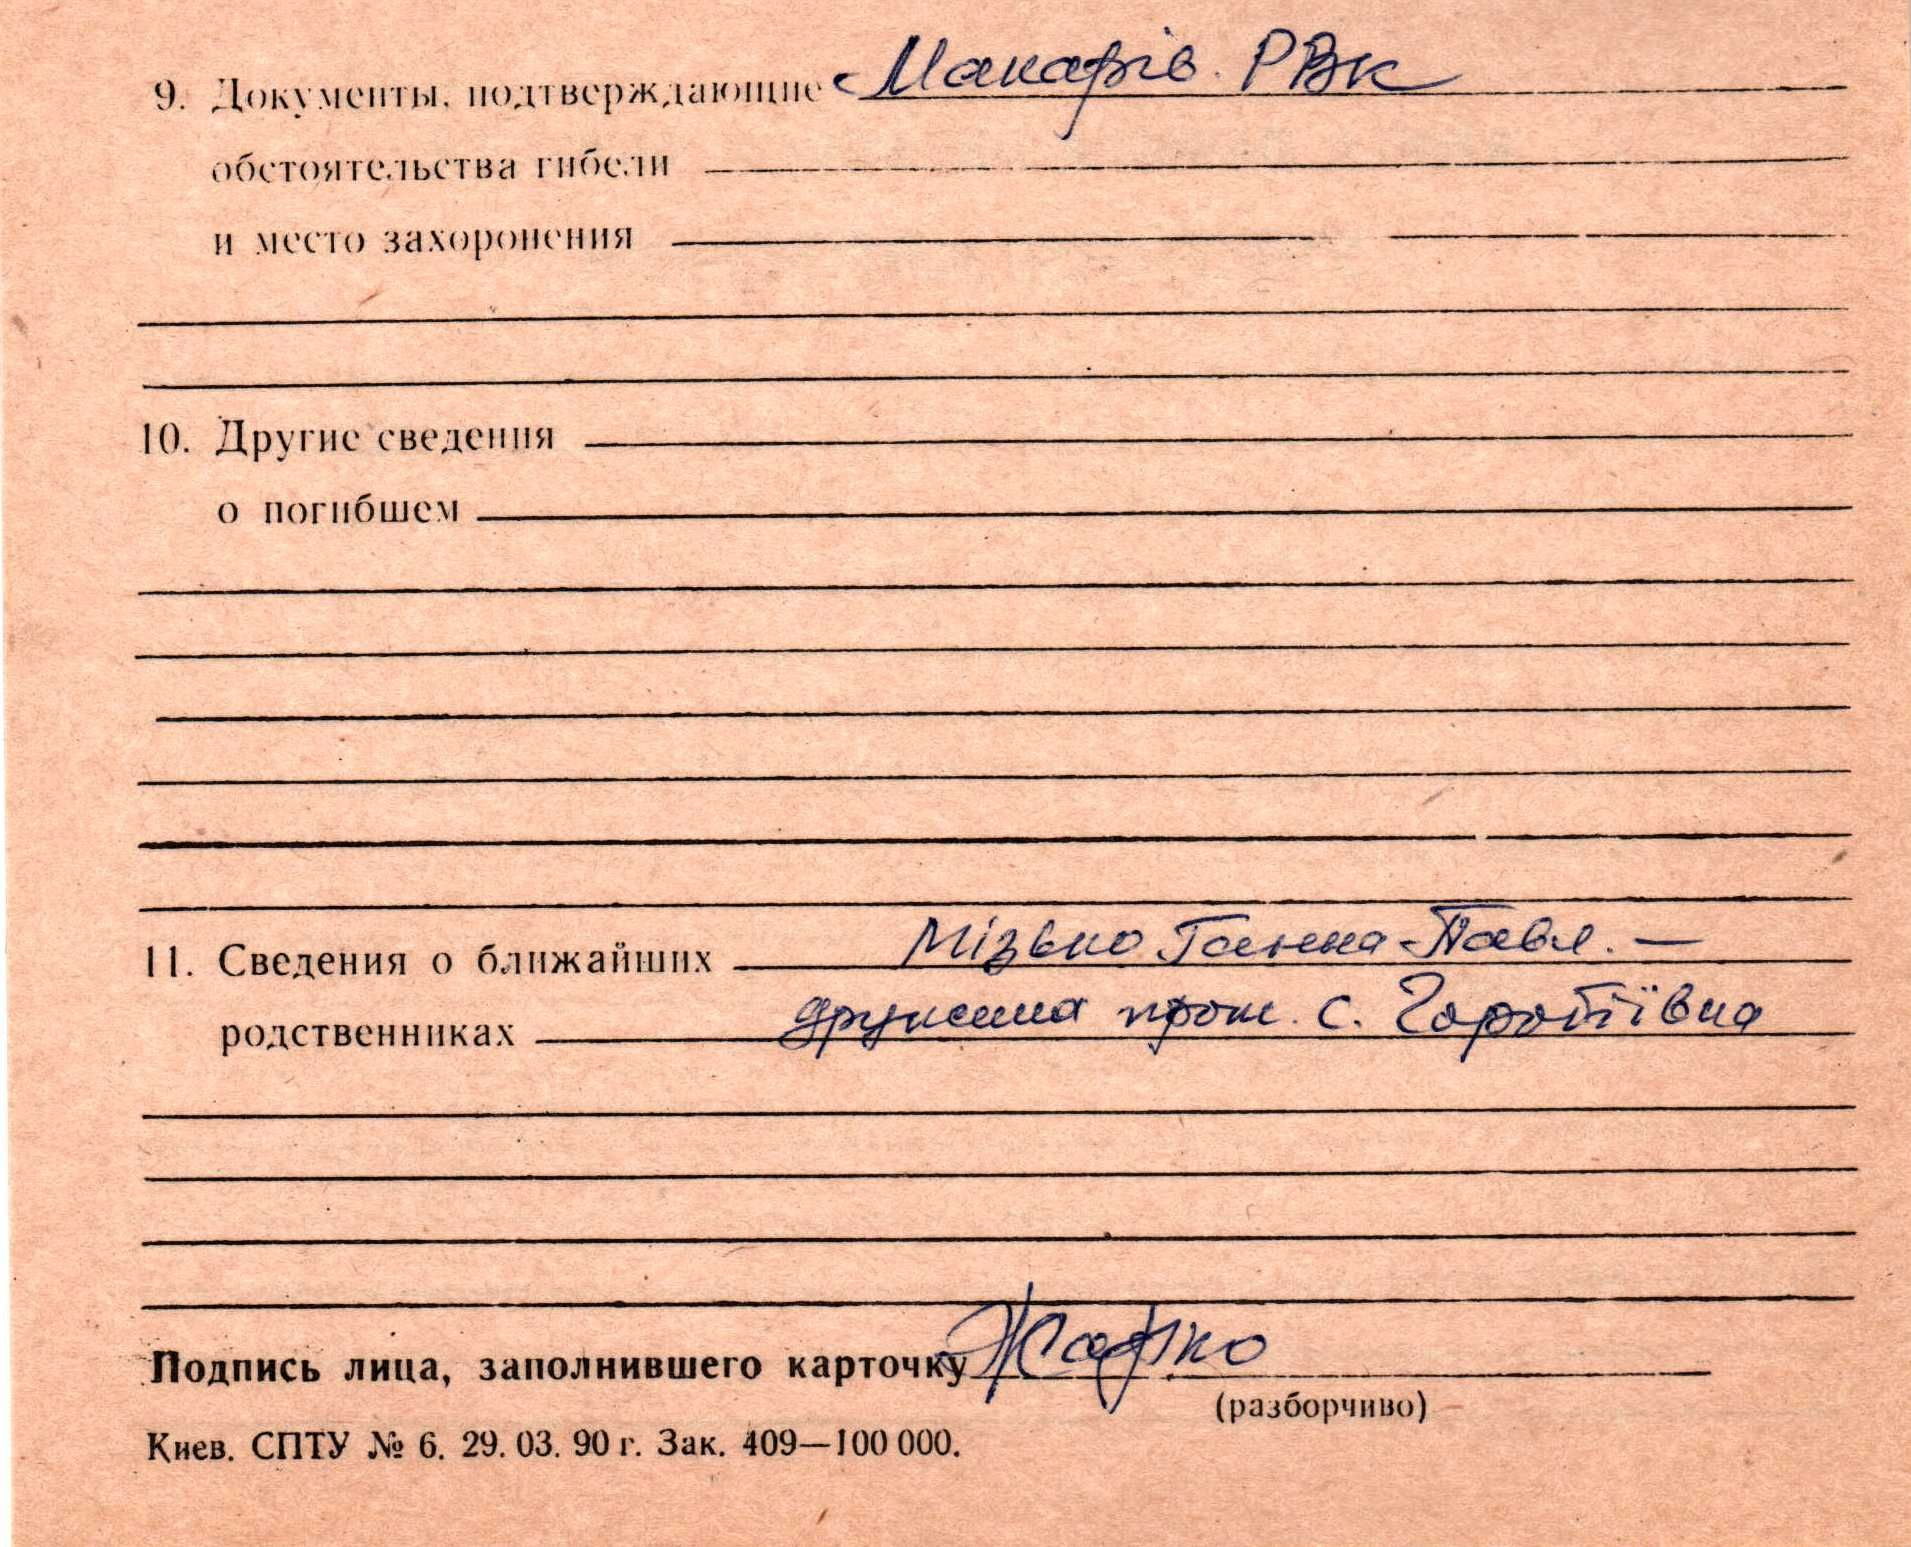 9. Документы, подтверждающие Макарів. РВК
обстоятельства гибели
и место захоронения
10. Другие сведения
о погибшем
11. Сведения о ближайших Мізько Ганна Павл. —
родственниках дружина прож. с. Гавронщина
Подпись лица, заполнившего карточку
(разборчиво)
Киев. СПТУ № 6. 29. 03. 90 г. Зак. 409—100 000.